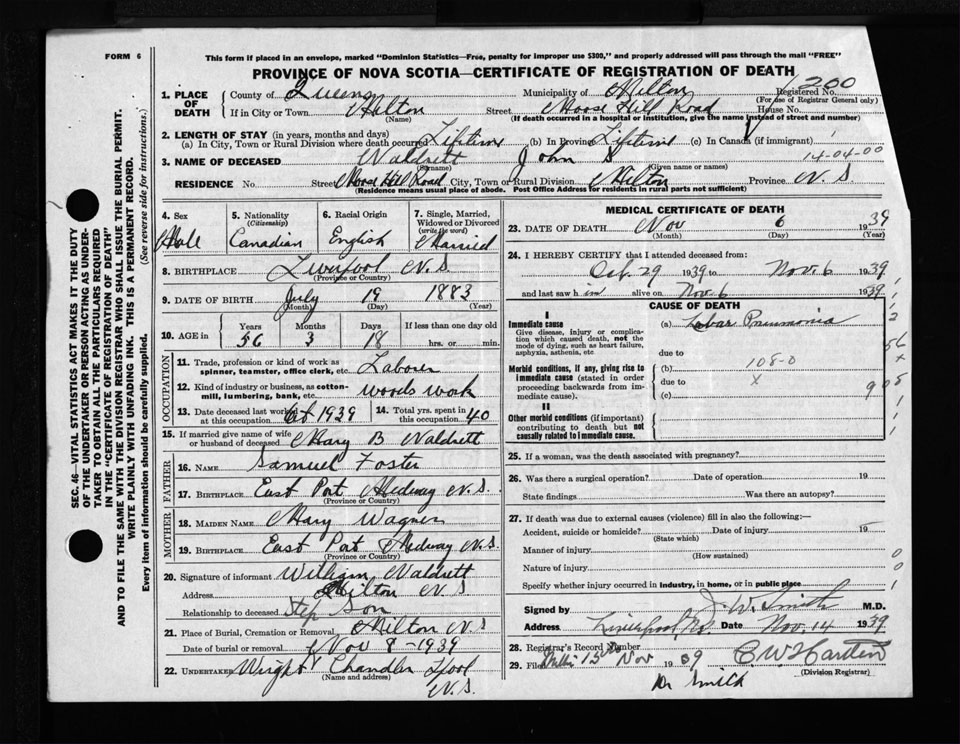 FORM 6
This form if placed in an envelope, marked "Dominion Statistics—Free, penalty for improper use $300," and properly addressed will pass through the mail "FREE"
PROVINCE OF NOVA SCOTIA—CERTIFICATE OF REGISTRATION OF DEATH
1200
1. PLACE OF DEATH
County of Queens Municipality of Milton Registered No.
(For use of Registrar General only)
If in City or Town Milton Street Moose Hill Road House No.
(Name) (If death occurred in a hospital or institution, give the name instead of street and number)
2. LENGTH OF STAY (in years, months and days)
(a) In City, Town or Rural Division where death occurred Lifetime (b) In Province Lifetime (c) In Canada (if immigrant)
3. NAME OF DECEASED Naldrett John S 14-04-00
(Surname) (Given name or names)
RESIDENCE No. Street Moose Hill Road City, Town or Rural Division Milton Province N S
(Residence means usual place of abode. Post Office Address for residents in rural parts not sufficient)
4. Sex Male
5. Nationality (Citizenship) Canadian
6. Racial Origin English
7. Single, Married, Widowed or Divorced (write the word) Married
8. BIRTHPLACE Liverpool N.S.
(Province or Country)
9. DATE OF BIRTH July 19 1883
(Month) (Day) (Year)
10. AGE in Years Months Days If less than one day old
56 3 18 hrs. or min.
OCCUPATION
11. Trade, profession or kind of work as spinner, teamster, office clerk, etc. Laborer
12. Kind of industry or business, as cotton-mill, lumbering, bank, etc. woods work
13. Date deceased last worked at this occupation Oct 1939
14. Total yrs. spent in this occupation 40
15. If married give name of wife or husband of deceased Mary B Naldrett
FATHER
16. NAME Samuel Foster
17. BIRTHPLACE East Port Medway N.S.
(Province or Country)
MOTHER
18. MAIDEN NAME Mary Wagner
19. BIRTHPLACE East Port Medway N.S.
(Province or Country)
20. Signature of informant William Naldrett
Address Milton N S
Relationship to deceased Step Son
21. Place of Burial, Cremation or Removal Milton N S
Date of burial or removal Nov 8-1939
22. UNDERTAKER Wright Chandler
(Name and address)
N.S.
MEDICAL CERTIFICATE OF DEATH
23. DATE OF DEATH Nov 6 1939
(Month) (Day) (Year)
24. I HEREBY CERTIFY that I attended deceased from:
Oct. 29 1939 to Nov. 6 1939
and last saw him alive on Nov. 6 1939
CAUSE OF DEATH
I
Immediate cause
Give disease, injury or complication which caused death, not the mode of dying, such as heart failure, asphyxia, asthenia, etc
(a) Lobar Pneumonia
due to
Morbid conditions, if any, giving rise to immediate cause (stated in order proceeding backwards from immediate cause).
(b) 108-0
due to X
(c)
II
Other morbid conditions (if important) contributing to death but not causally related to immediate cause.
25. If a woman, was the death associated with pregnancy?
26. Was there a surgical operation? Date of operation 19
State findings Was there an autopsy?
27. If death was due to external causes (violence) fill in also the following:—
Accident, suicide or homicide? Date of injury 19
(State which)
Manner of injury
(How sustained)
Nature of injury
Specify whether injury occurred in industry, in home, or in public place
Signed by J. W. Smith M.D.
Address Liverpool N.S. Date Nov. 14 1939
28. Registrar's Record Number
29. Filed 15 Nov 1939
(Division Registrar)
Dr Smith
SEC. 46—VITAL STATISTICS ACT MAKES IT THE DUTY
OF THE UNDERTAKER OR PERSON ACTING AS UNDER-
TAKER TO OBTAIN ALL THE PARTICULARS REQUIRED
IN THE "CERTIFICATE OF REGISTRATION OF DEATH"
AND TO FILE THE SAME WITH THE DIVISION REGISTRAR WHO SHALL ISSUE THE BURIAL PERMIT.
WRITE PLAINLY WITH UNFADING INK. THIS IS A PERMANENT RECORD.
Every item of information should be carefully supplied. (See reverse side for instructions.)